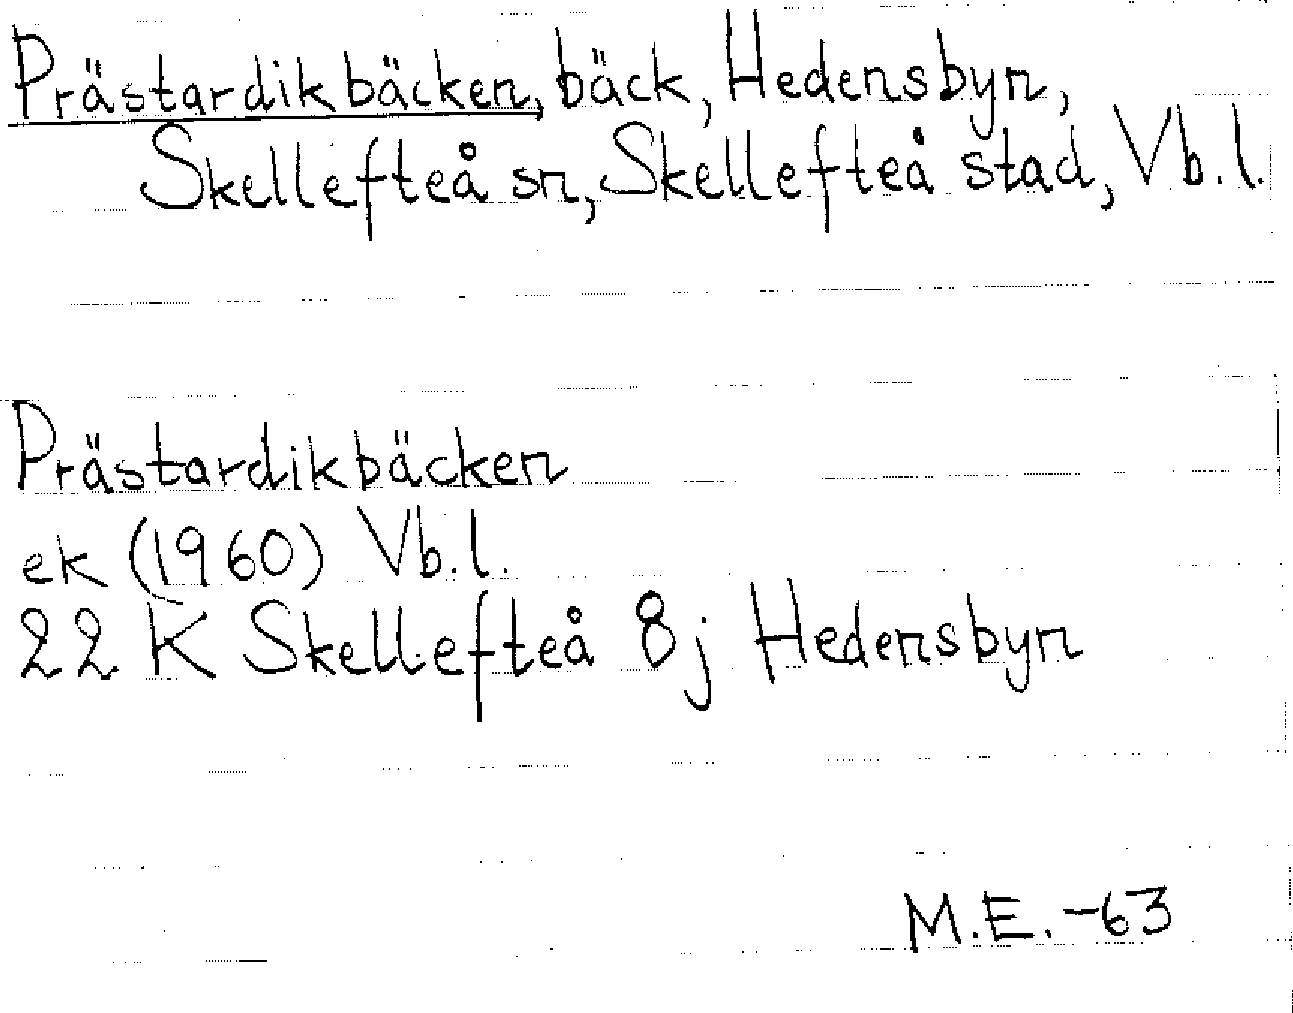 Prästardikbäcken, bäck, Hedensbyn,
Skellefteå sn, Skellefteå stad, Vb.l.
Prästardikbäcken
ek (1960) Vb.l.
22 K Skellefteå 8j Hedensbyn
M.E. -63